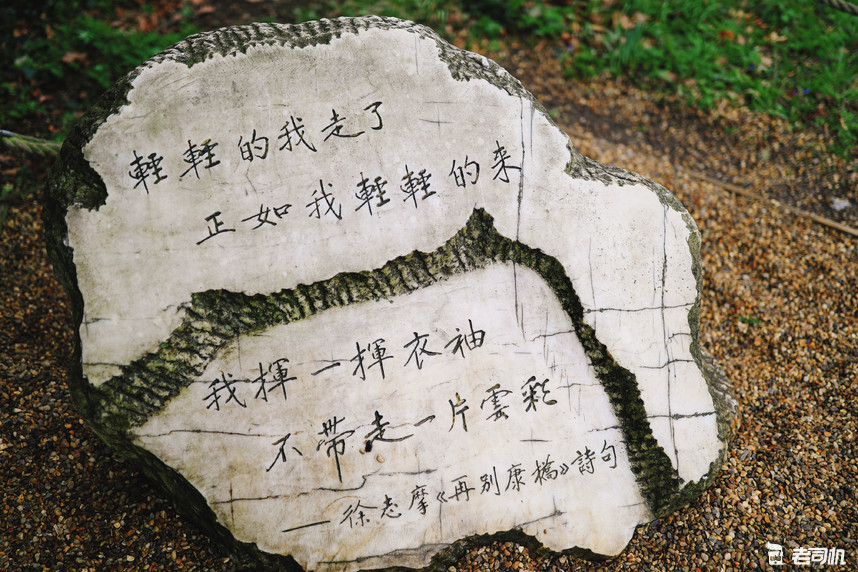 輕輕的我走了
正如我輕輕的来
我揮一揮衣袖
不帶走一片雲彩
—徐志摩《再别康橋》詩句
老司机